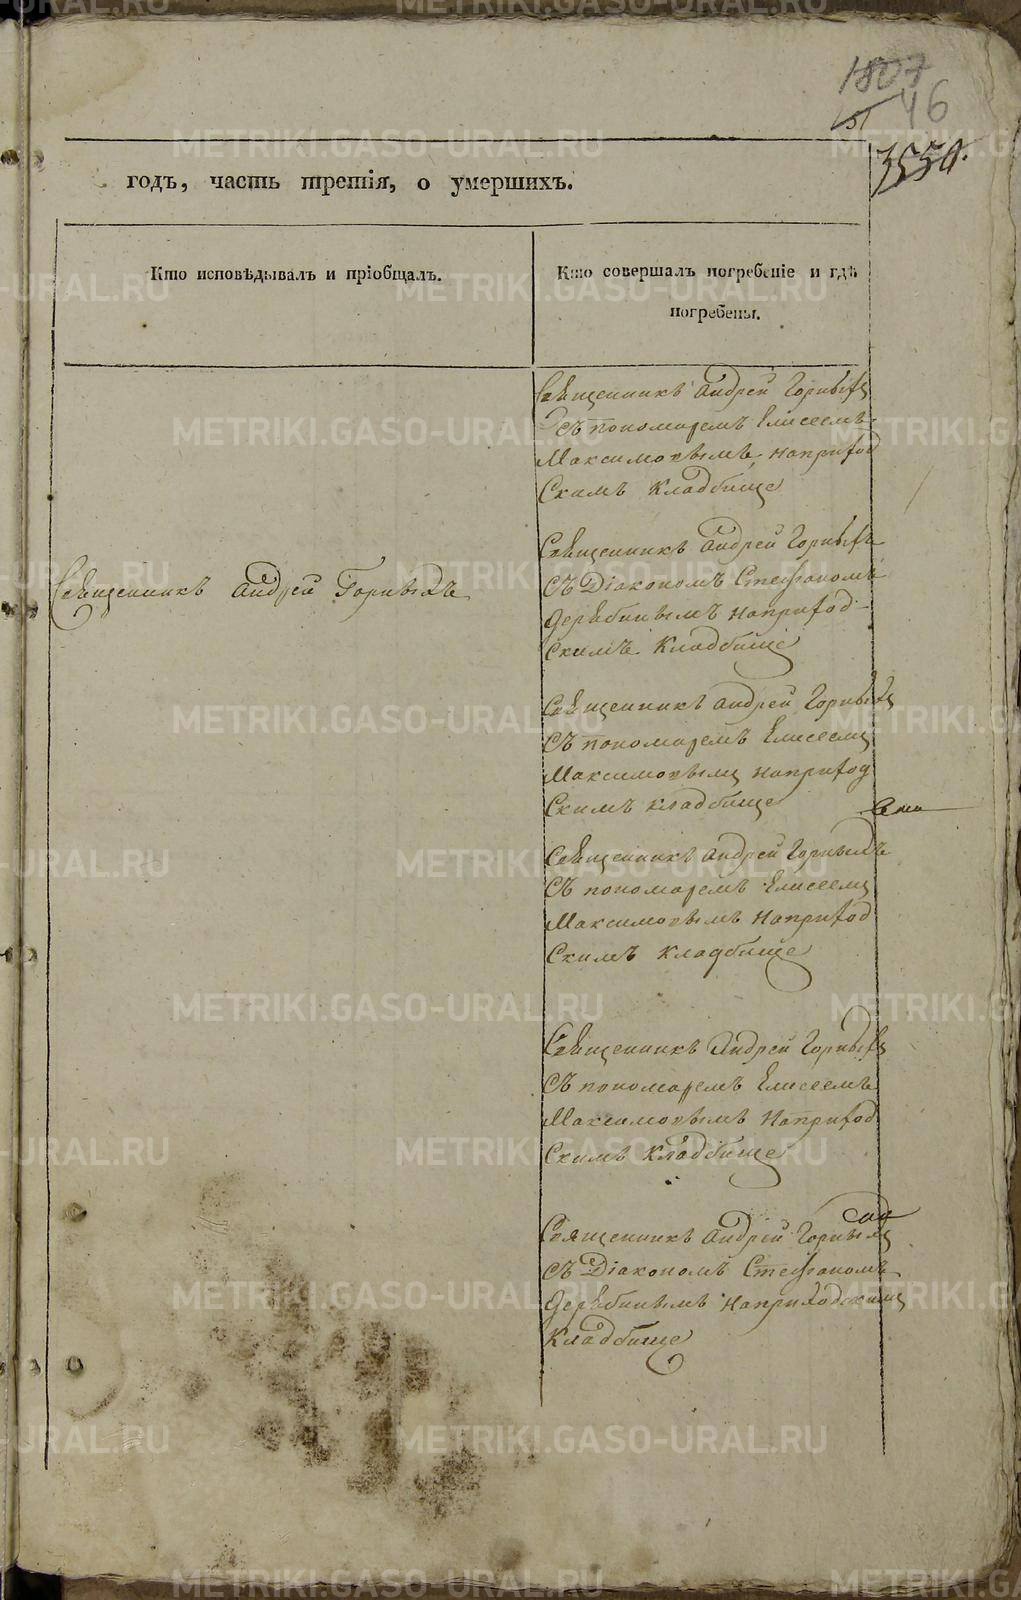 1807
46
3550.
годъ, часть третія, о умершихъ.
Кто исповѣдывалъ и пріобщалъ.
Кто совершалъ погребеніе и гдѣ
погребены.
Священникъ Андрей Горныхъ
съ пономаремъ Елисеемъ
Максимовымъ наприход
скимъ кладбище
Священникъ Андрей Горныхъ
Священникъ Андрей Горныхъ
съ Діакономъ Стефаномъ
Дерябинымъ наприход
скимъ кладбище
Священникъ Андрей Горныхъ
съ пономаремъ Елисеемъ
Максимовымъ наприход
скимъ кладбище
Священникъ Андрей Горныхъ
съ пономаремъ Елисеемъ
Максимовымъ наприход
скимъ кладбище
Священникъ Андрей Горныхъ
съ пономаремъ Елисеемъ
Максимовымъ наприход
скимъ кладбище
Священникъ Андрей Горныхъ
съ Діакономъ Стефаномъ
Дерябинымъ наприходскимъ
кладбище
METRIKI.GASO-URAL.RU